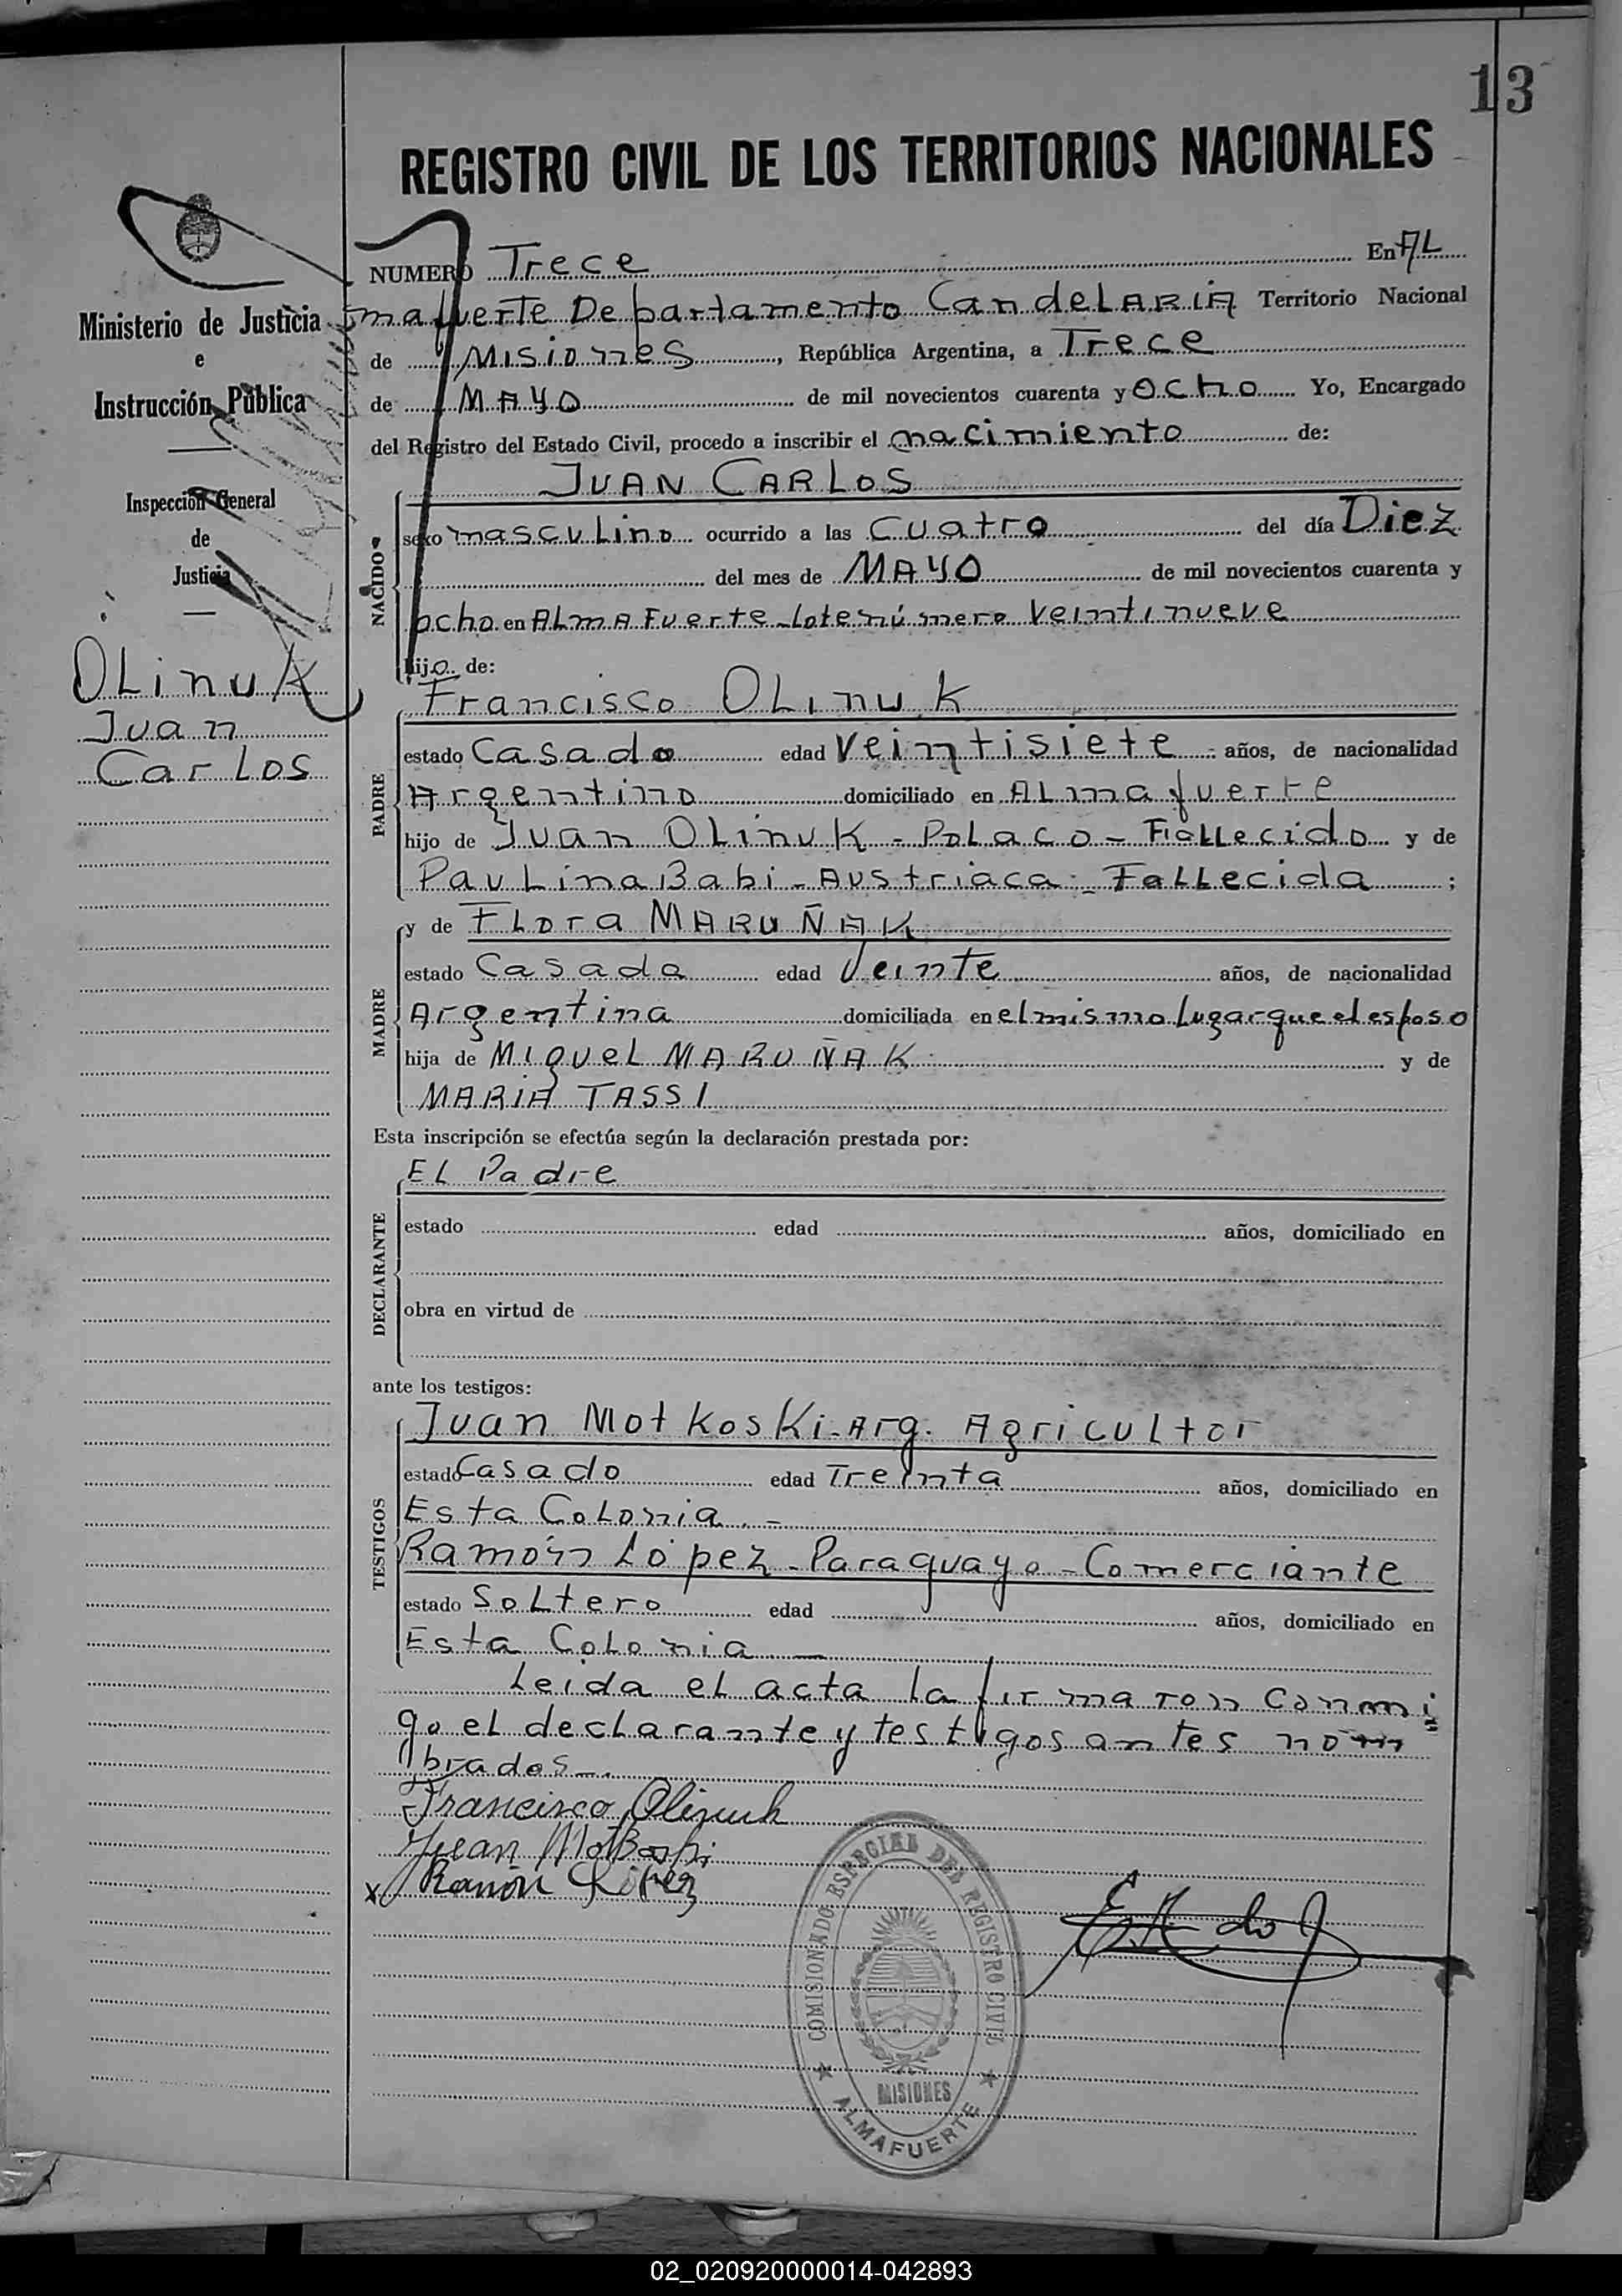 13
REGISTRO CIVIL DE LOS TERRITORIOS NACIONALES
Ministerio de Justicia
e
Instrucción Pública
Inspección General
de
Justicia
OLinuK
Juan
CarLos
NUMERO Trece En AL
mafuerte Departamento CandeLARIA Territorio Nacional
de Misiones, República Argentina, a Trece
de MAYO de mil novecientos cuarenta y Ocho Yo, Encargado
del Registro del Estado Civil, procedo a inscribir el nacimiento de:
JUAN CARLOS
NACIDO
sexo mascuLino ocurrido a las Cuatro del día Diez
del mes de MAYO de mil novecientos cuarenta y
ocho en ALmAFuerte Lote número Veintinueve
hijo de:
Francisco OLinuK
PADRE
estado Casado edad Veintisiete años, de nacionalidad
Argentino domiciliado en ALmafuerte
hijo de Juan OLinuK - PoLaco - FaLLecido y de
PauLina Babi - Austriaca - FaLLecida ;
y de FLora MARUÑAK
MADRE
estado Casada edad Veinte años, de nacionalidad
Argentina domiciliada en el mismo Lugar que el esposo
hija de MigueL MARUÑAK y de
MARIA TASSI
Esta inscripción se efectúa según la declaración prestada por:
EL Padre
DECLARANTE
estado edad años, domiciliado en
obra en virtud de
ante los testigos:
Juan MotkosKi - Arg. AgricuLtor
TESTIGOS
estado Casado edad Treinta años, domiciliado en
Esta CoLonia. -
Ramón López - Paraguayo - Comerciante
estado SoLtero edad años, domiciliado en
Esta CoLonia —
Leida eL acta la firmaron conmi
go el decLarante y testigos antes nom
brados -.
Francisco Olinuk
Juan Motkoski
x Ramón López
COMISIONADO ESPECIAL DEL REGISTRO CIVIL
MISIONES
ALMAFUERTE
02_020920000014-042893